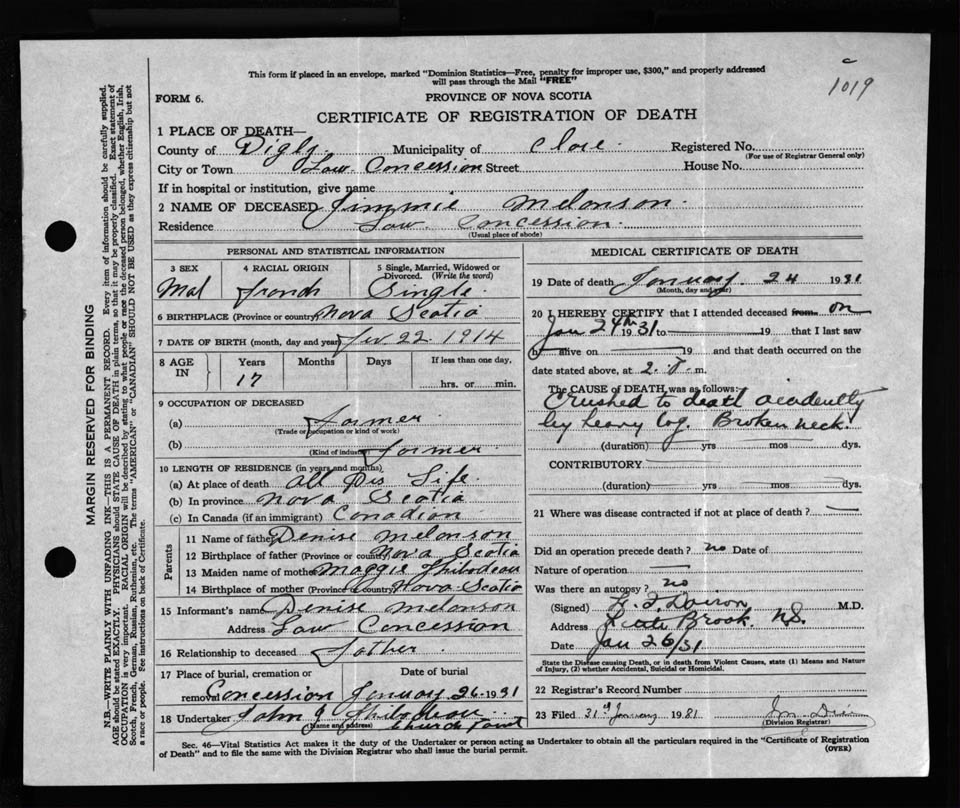 1019
This form if placed in an envelope, marked "Dominion Statistics—Free, penalty for improper use, $300," and properly addressed
will pass through the Mail "FREE"
FORM 6.
PROVINCE OF NOVA SCOTIA
CERTIFICATE OF REGISTRATION OF DEATH
1 PLACE OF DEATH—
County of Digby. Municipality of Clare. Registered No.
(For use of Registrar General only)
City or Town Law. Concession Street House No.
If in hospital or institution, give name
2 NAME OF DECEASED Jimmie Melonson.
Residence Law. Concession.
(Usual place of abode)
PERSONAL AND STATISTICAL INFORMATION
3 SEX 4 RACIAL ORIGIN 5 Single, Married, Widowed or
Divorced. (Write the word)
Mal french Single.
6 BIRTHPLACE (Province or country) Nova Scotia
7 DATE OF BIRTH (month, day and year) 22. 1914
8 AGE IN Years Months Days If less than one day,
17 hrs. or min.
9 OCCUPATION OF DECEASED
(a) former
(Trade or occupation or kind of work)
(b) former.
(Kind of industry)
10 LENGTH OF RESIDENCE (in years and months)
(a) At place of death all his Life.
(b) In province Nova Scotia
(c) In Canada (if an immigrant) Canadian
Parents
11 Name of father Denise Melonson
12 Birthplace of father (Province or country) Nova Scotia
13 Maiden name of mother Maggie Thibodeau
14 Birthplace of mother (Province or country) Nova Scotia
15 Informant's name Denise Melonson
Address Law Concession
16 Relationship to deceased father
17 Place of burial, cremation or Date of burial
removal Concession January 26-1931
18 Undertaker John J Thibodeau
(Name and address) Church Point
MEDICAL CERTIFICATE OF DEATH
19 Date of death January. 24 1931
(Month, day and year)
20 I HEREBY CERTIFY that I attended deceased from on
Jan 24th 1931 to 19 that I last saw
h alive on 19 and that death occurred on the
date stated above, at 2. P. m.
The CAUSE OF DEATH was as follows:
Crushed to death acidently
by heavy log. Broken neck.
(duration) yrs mos dys.
CONTRIBUTORY
(duration) yrs mos dys.
21 Where was disease contracted if not at place of death?
Did an operation precede death? no Date of
Nature of operation
Was there an autopsy? no
(Signed) M.D.
Address Little Brook. N.S.
Date Jan 26/31
State the Disease causing Death, or in death from Violent Causes, state (1) Means and Nature
of Injury, (2) whether Accidental, Suicidal or Homicidal.
22 Registrar's Record Number
23 Filed 31st January 1931
(Division Registrar)
Sec. 46—Vital Statistics Act makes it the duty of the Undertaker or person acting as Undertaker to obtain all the particulars required in the "Certificate of Registration
of Death" and to file the same with the Division Registrar who shall issue the burial permit.
(OVER)
MARGIN RESERVED FOR BINDING
N.B.—WRITE PLAINLY WITH UNFADING INK—THIS IS A PERMANENT RECORD. Every item of information should be carefully supplied.
AGE should be stated EXACTLY. PHYSICIANS should STATE CAUSE OF DEATH in plain terms, so that it may be properly classified. Exact statement of
OCCUPATION is very important. RACIAL ORIGIN will be described by stating to what people or race the deceased person belonged, whether English, Irish,
Scotch, French, German, Russian, Ruthenian, etc. The terms "AMERICAN" or "CANADIAN" SHOULD NOT BE USED as they express citizenship but not
a race or people. See instructions on back of Certificate.